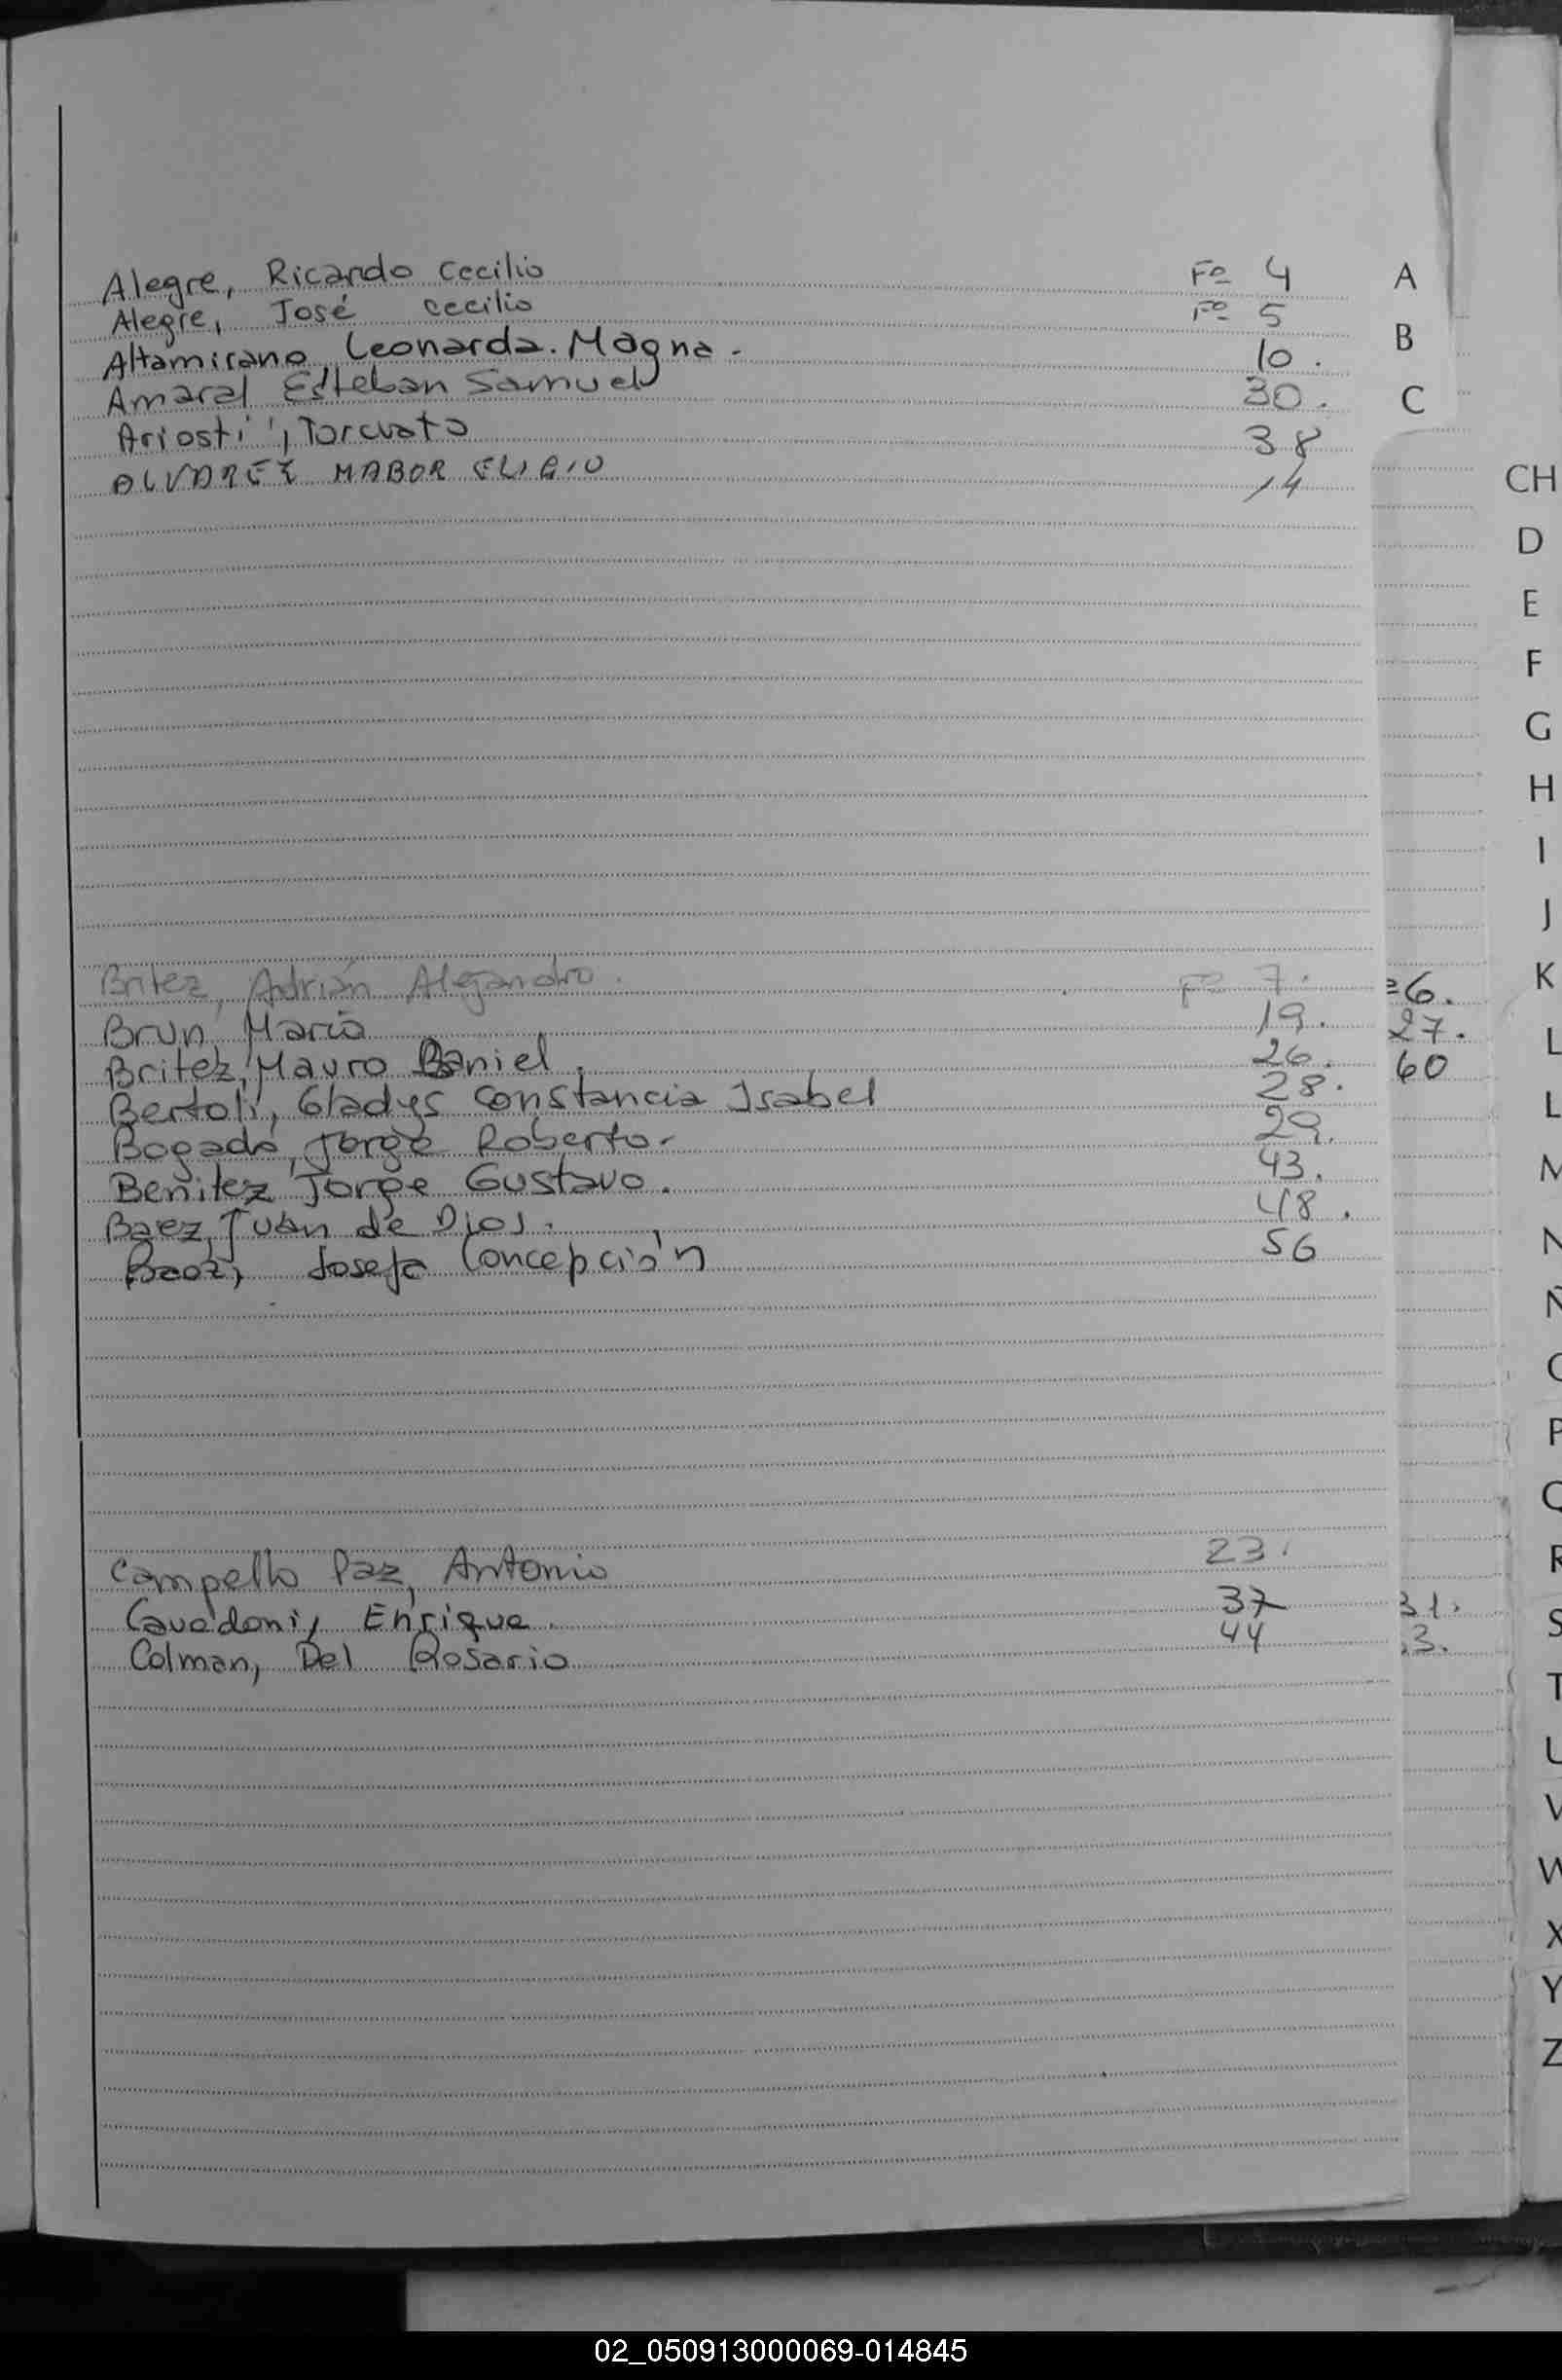 Alegre, Ricardo Cecilio Fº 4 A
Alegre, José Cecilio Fº 5
Altamirano Leonarda. Magna. 10. B
Amaral Esteban Samuel 30. C
Ariosti, Torcuato 38
ALVAREZ MABOR ELIGIO 14
CH
D
E
F
G
H
I
J
Britez, Adrián Alejandro. Fº 7. 6. K
Brun, María 19. 27.
Britez, Mauro Daniel. 26. 60 L
Bertoli, Gladys Constancia Isabel 28. L
Bogado, Jorge Roberto. 29.
Benitez Jorge Gustavo. 43. M
Baez, Juan de Dios. 48. N
Baez, Josefa Concepción 56
Ñ
O
P
Q
Campello Paz, Antonio 23. R
Cavedoni, Enrique. 37 31. S
Colman, Del Rosario 44 3.
T
U
V
W
X
Y
Z
02_050913000069-014845